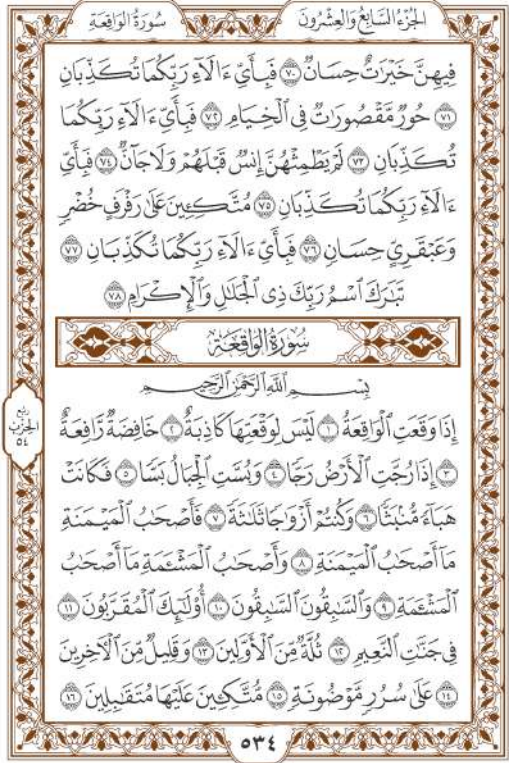 الجُزْءُ السَّابِعُ وَالعِشْرُونَ
سُورَةُ الوَاقِعَةِ
فِيهِنَّ خَيْرَٰتٌ حِسَانٌ ٧٠ فَبِأَيِّ ءَالَآءِ رَبِّكُمَا تُكَذِّبَانِ
٧١ حُورٌ مَّقْصُورَٰتٌ فِى ٱلْخِيَامِ ٧٢ فَبِأَيِّ ءَالَآءِ رَبِّكُمَا
تُكَذِّبَانِ ٧٣ لَمْ يَطْمِثْهُنَّ إِنسٌ قَبْلَهُمْ وَلَا جَآنٌّ ٧٤ فَبِأَيِّ
ءَالَآءِ رَبِّكُمَا تُكَذِّبَانِ ٧٥ مُتَّكِـِٔينَ عَلَىٰ رَفْرَفٍ خُضْرٍ
وَعَبْقَرِىٍّ حِسَانٍ ٧٦ فَبِأَيِّ ءَالَآءِ رَبِّكُمَا تُكَذِّبَانِ ٧٧
تَبَٰرَكَ ٱسْمُ رَبِّكَ ذِى ٱلْجَلَٰلِ وَٱلْإِكْرَامِ ٧٨
سُورَةُ الوَاقِعَةِ
بِسْمِ ٱللَّهِ ٱلرَّحْمَٰنِ ٱلرَّحِيمِ
إِذَا وَقَعَتِ ٱلْوَاقِعَةُ ١ لَيْسَ لِوَقْعَتِهَا كَاذِبَةٌ ٢ خَافِضَةٌ رَّافِعَةٌ
٣ إِذَا رُجَّتِ ٱلْأَرْضُ رَجًّا ٤ وَبُسَّتِ ٱلْجِبَالُ بَسًّا ٥ فَكَانَتْ
هَبَآءً مُّنۢبَثًّا ٦ وَكُنتُمْ أَزْوَٰجًا ثَلَٰثَةً ٧ فَأَصْحَٰبُ ٱلْمَيْمَنَةِ
مَآ أَصْحَٰبُ ٱلْمَيْمَنَةِ ٨ وَأَصْحَٰبُ ٱلْمَشْـَٔمَةِ مَآ أَصْحَٰبُ
ٱلْمَشْـَٔمَةِ ٩ وَٱلسَّٰبِقُونَ ٱلسَّٰبِقُونَ ١٠ أُو۟لَٰٓئِكَ ٱلْمُقَرَّبُونَ ١١
فِى جَنَّٰتِ ٱلنَّعِيمِ ١٢ ثُلَّةٌ مِّنَ ٱلْأَوَّلِينَ ١٣ وَقَلِيلٌ مِّنَ ٱلْـَٔاخِرِينَ
١٤ عَلَىٰ سُرُرٍ مَّوْضُونَةٍ ١٥ مُّتَّكِـِٔينَ عَلَيْهَا مُتَقَٰبِلِينَ ١٦
ربع
الحزب
٥٤
٥٣٤